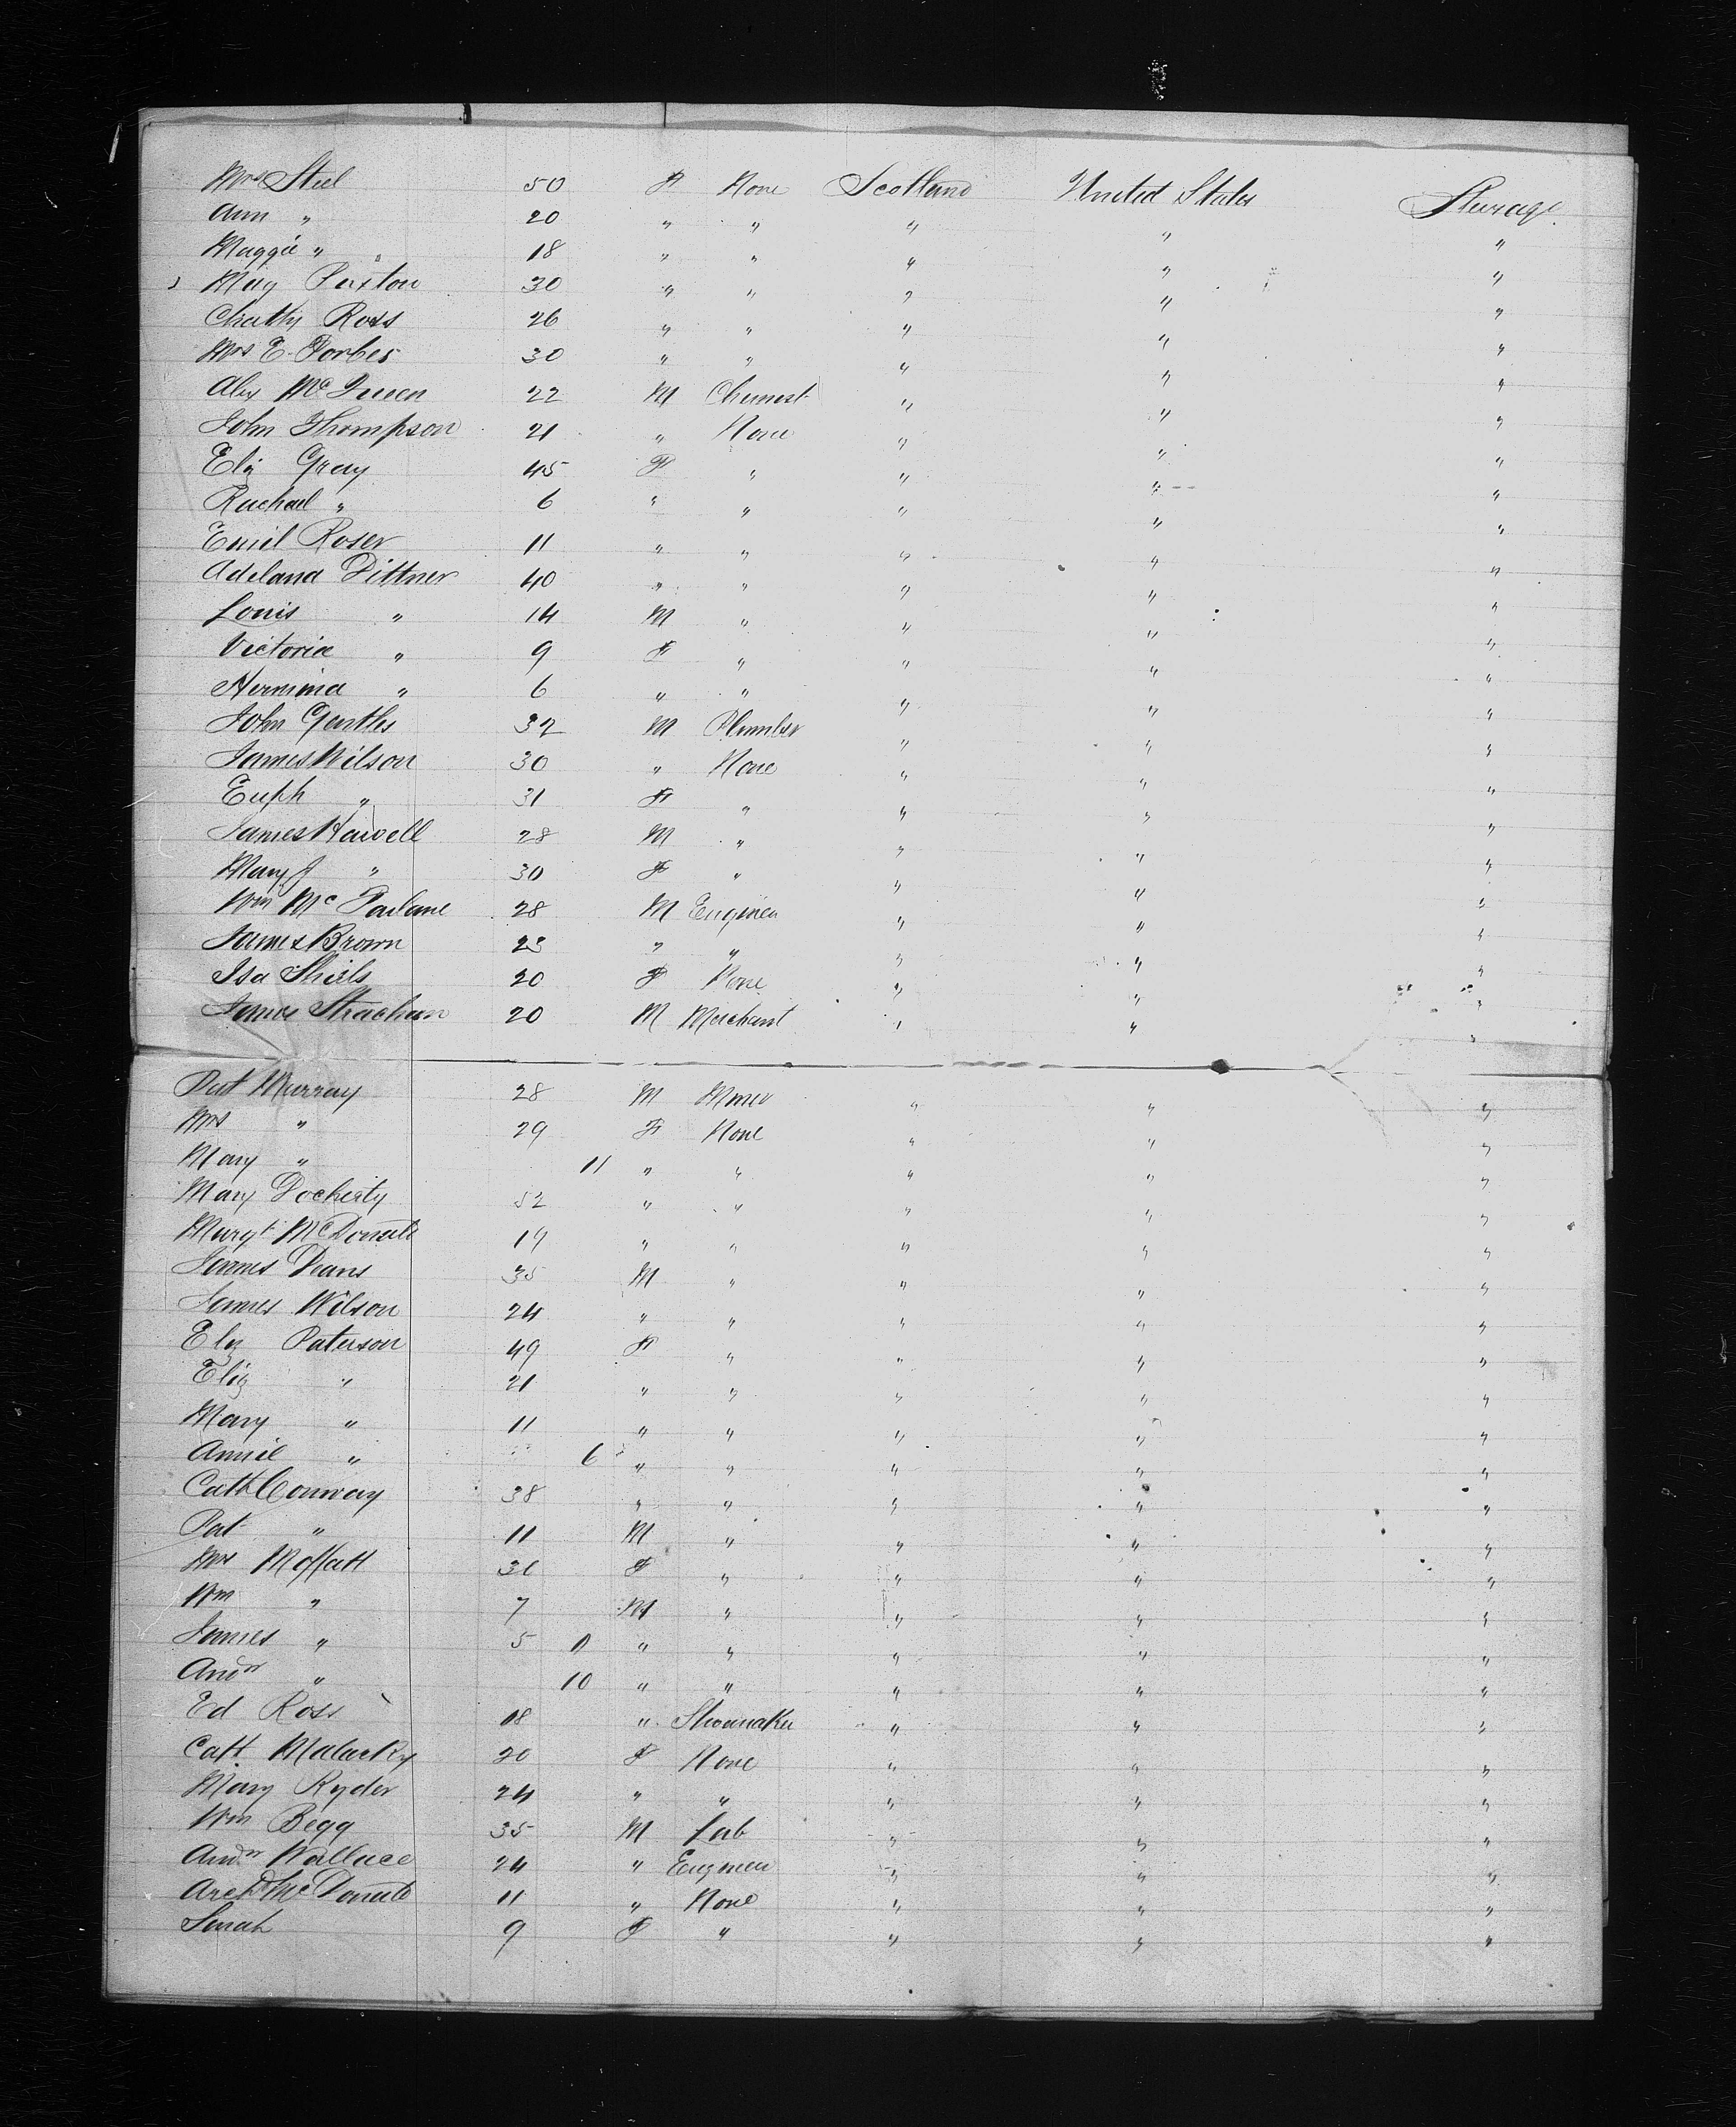 Mrs Steel 50 F None Scotland United States Steerage
Ann " 20 " " " " "
Maggie " 18 " " " " "
May Paxton 30 " " " " "
Chatty Ross 26 " " " " "
Mrs E. Forbes 30 " " " " "
Alex McQueen 22 M Chemist " " "
John Thompson 21 " None " " "
Eliz Gray 45 F " " " "
Rachael " 6 " " " " "
Emil Roser 11 " " " " "
Adeland Dittner 40 " " " " "
Louis " 14 M " " " "
Victoria " 9 F " " " "
Hermina " 6 " " " " "
John Gentles 32 M Plumber " " "
James Wilson 30 " None " " "
Euph " 31 F " " " "
James Howell 28 M " " " "
Mary J " 30 F " " " "
Wm McFarlane 28 M Engineer " " "
James Brown 23 " " " " "
Isa Shiels 20 F None " " "
James Strachan 20 M Merchant " " "
Pat Murray 28 M Miner " " "
Mrs " 29 F None " " "
Mary " 11 " " " " "
Mary Docherty 52 " " " " "
Margt McDonald 19 " " " " "
James Deans 35 M " " " "
James Wilson 24 " " " " "
Eliz Paterson 49 F " " " "
Eliz " 21 " " " " "
Mary " 11 " " " " "
Annie " 6 " " " " "
Cath Conway 38 " " " " "
Pat " 11 M " " " "
Mrs Moffatt 31 F " " " "
Wm " 7 M " " " "
James " 5 " " " " "
Andw " 10 " " " " "
Ed Ross 18 " Shoemaker " " "
Cath Malacky 20 F None " " "
Mary Ryder 24 " " " " "
Wm Begg 35 M Lab " " "
Andw Wallace 24 " Engineer " " "
Archd McDonald 11 " None " " "
Sarah 9 F " " " "